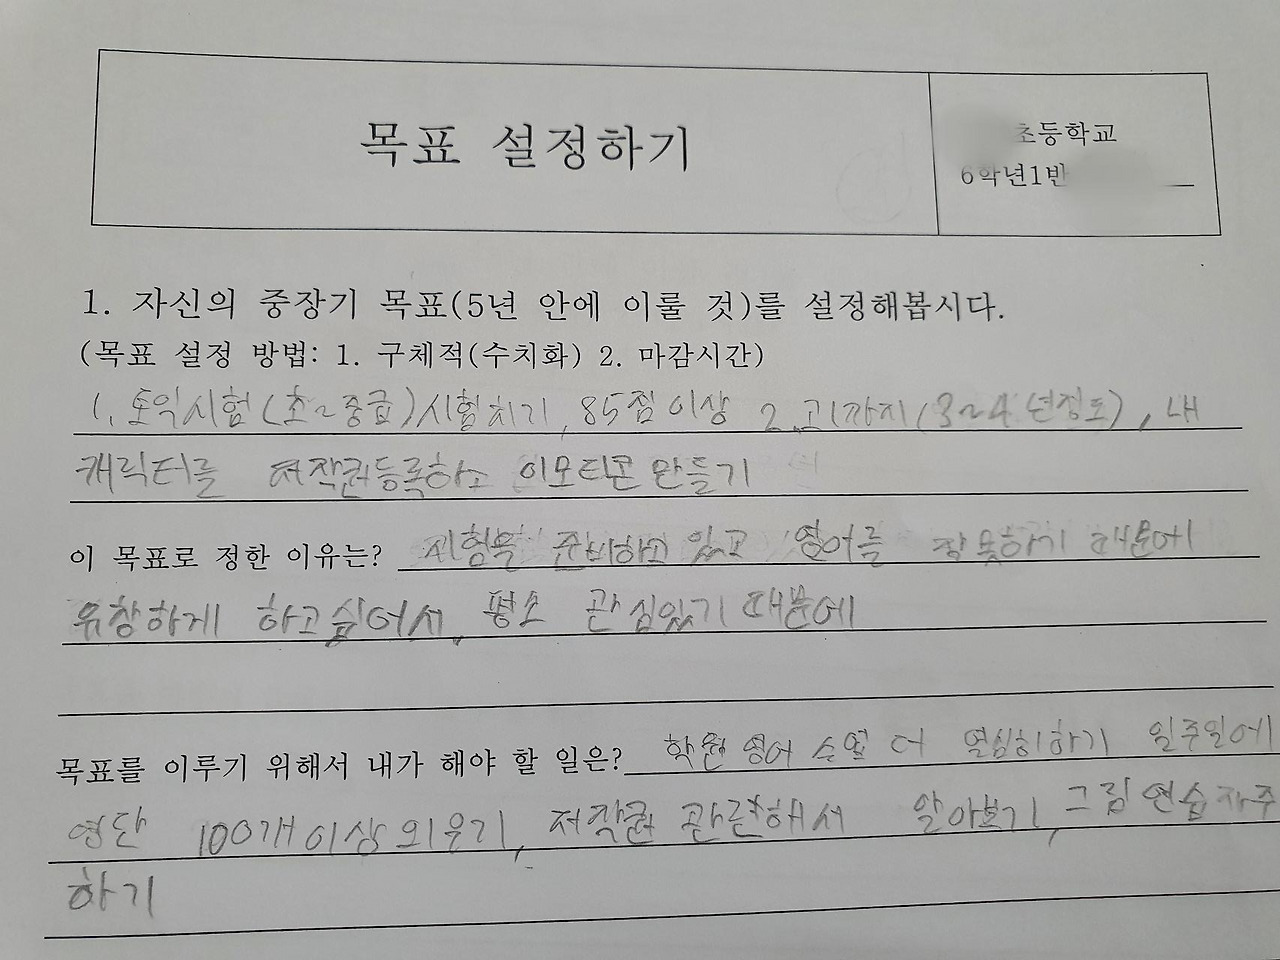 목표 설정하기
초등학교
6학년1반
1. 자신의 중장기 목표(5년 안에 이룰 것)를 설정해봅시다.
(목표 설정 방법: 1. 구체적(수치화) 2. 마감시간)
1. 토익시험(초~중급)시험치기, 85점이상 2. 고1까지(3~4년정도), 내
캐릭터를 저작권등록하고 이모티콘만들기
이 목표로 정한 이유는? 시험을 준비하고 있고 영어를 잘못하기 때문에
유창하게 하고싶어서, 평소 관심있기때문에
목표를 이루기 위해서 내가 해야 할 일은? 학원 영어 수업 더 열심히하기 일주일에
영단 100개이상외우기, 저작권 관련해서 알아보기, 그림연습자주
하기